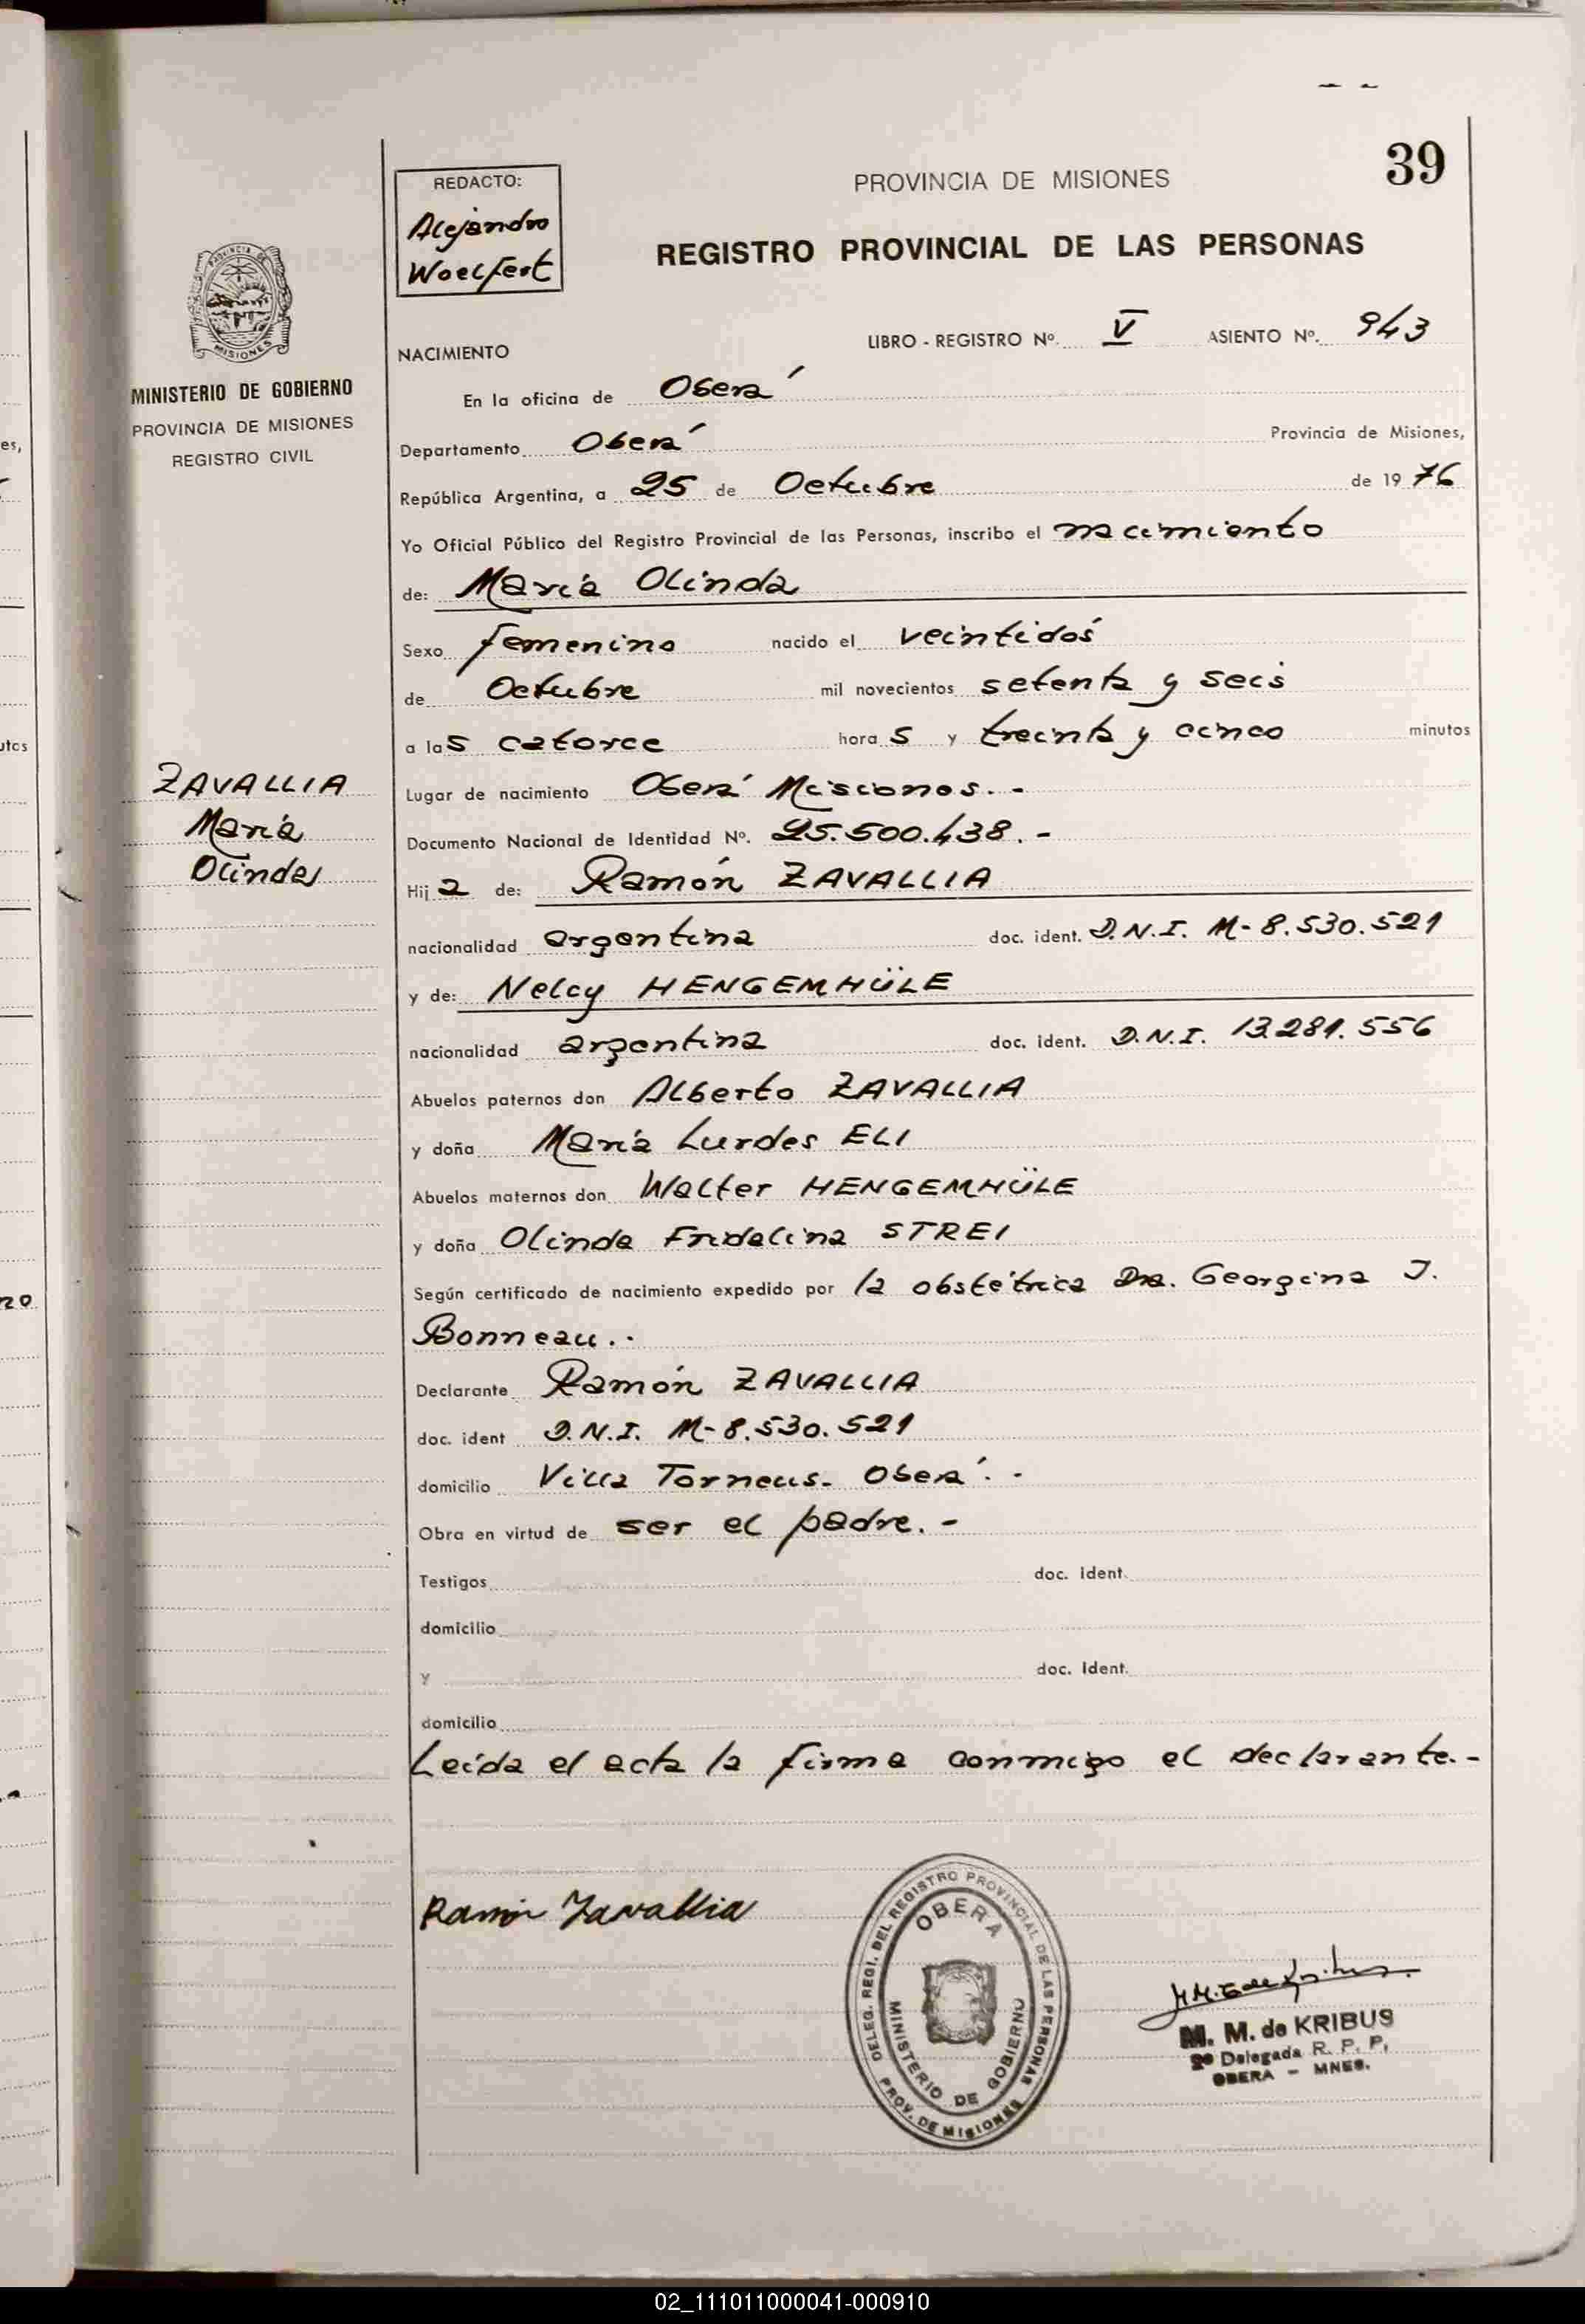 39
REDACTO:
Alejandro
Woelfert
PROVINCIA DE MISIONES
REGISTRO PROVINCIAL DE LAS PERSONAS
PROVINCIA DE
MISIONES
MINISTERIO DE GOBIERNO
PROVINCIA DE MISIONES
REGISTRO CIVIL
LIBRO - REGISTRO Nº. V ASIENTO Nº. 943
NACIMIENTO
En la oficina de Oberá
Departamento Oberá Provincia de Misiones,
República Argentina, a 25 de Octubre de 1976
Yo Oficial Público del Registro Provincial de las Personas, inscribo el nacimiento
de: María Olinda
Sexo femenino nacido el veintidós
de Octubre mil novecientos setenta y seis
a las catorce horas y treinta y cinco minutos
Lugar de nacimiento Oberá Misiones.-
Documento Nacional de Identidad Nº. 25.500.438.-
ZAVALLIA
María
Olinda
Hija de: Ramón ZAVALLIA
nacionalidad argentina doc. ident. D.N.I. M-8.530.521
y de: Nelcy HENGEMHÜLE
nacionalidad argentina doc. ident. D.N.I. 13.281.556
Abuelos paternos don Alberto ZAVALLIA
y doña María Lurdes ELI
Abuelos maternos don Walter HENGEMHÜLE
y doña Olinda Fridalina STREI
Según certificado de nacimiento expedido por la obstétrica Dra. Georgina J.
Bonneau.-
Declarante Ramón ZAVALLIA
doc. ident D.N.I. M-8.530.521
domicilio Villa Torneus. Oberá.-
Obra en virtud de ser el padre.-
Testigos doc. ident.
domicilio
y doc. Ident.
domicilio
Leída el acta la firma conmigo el declarante.-
Ramón Zavallia
DELEG. REGI. DEL REGISTRO PROVINCIAL DE LAS PERSONAS
OBERA
MINISTERIO DE GOBIERNO
PROV. DE MISIONES
M. M. de KRIBUS
2º Delegada R. P. P.
OBERA - MNES.
02_111011000041-000910